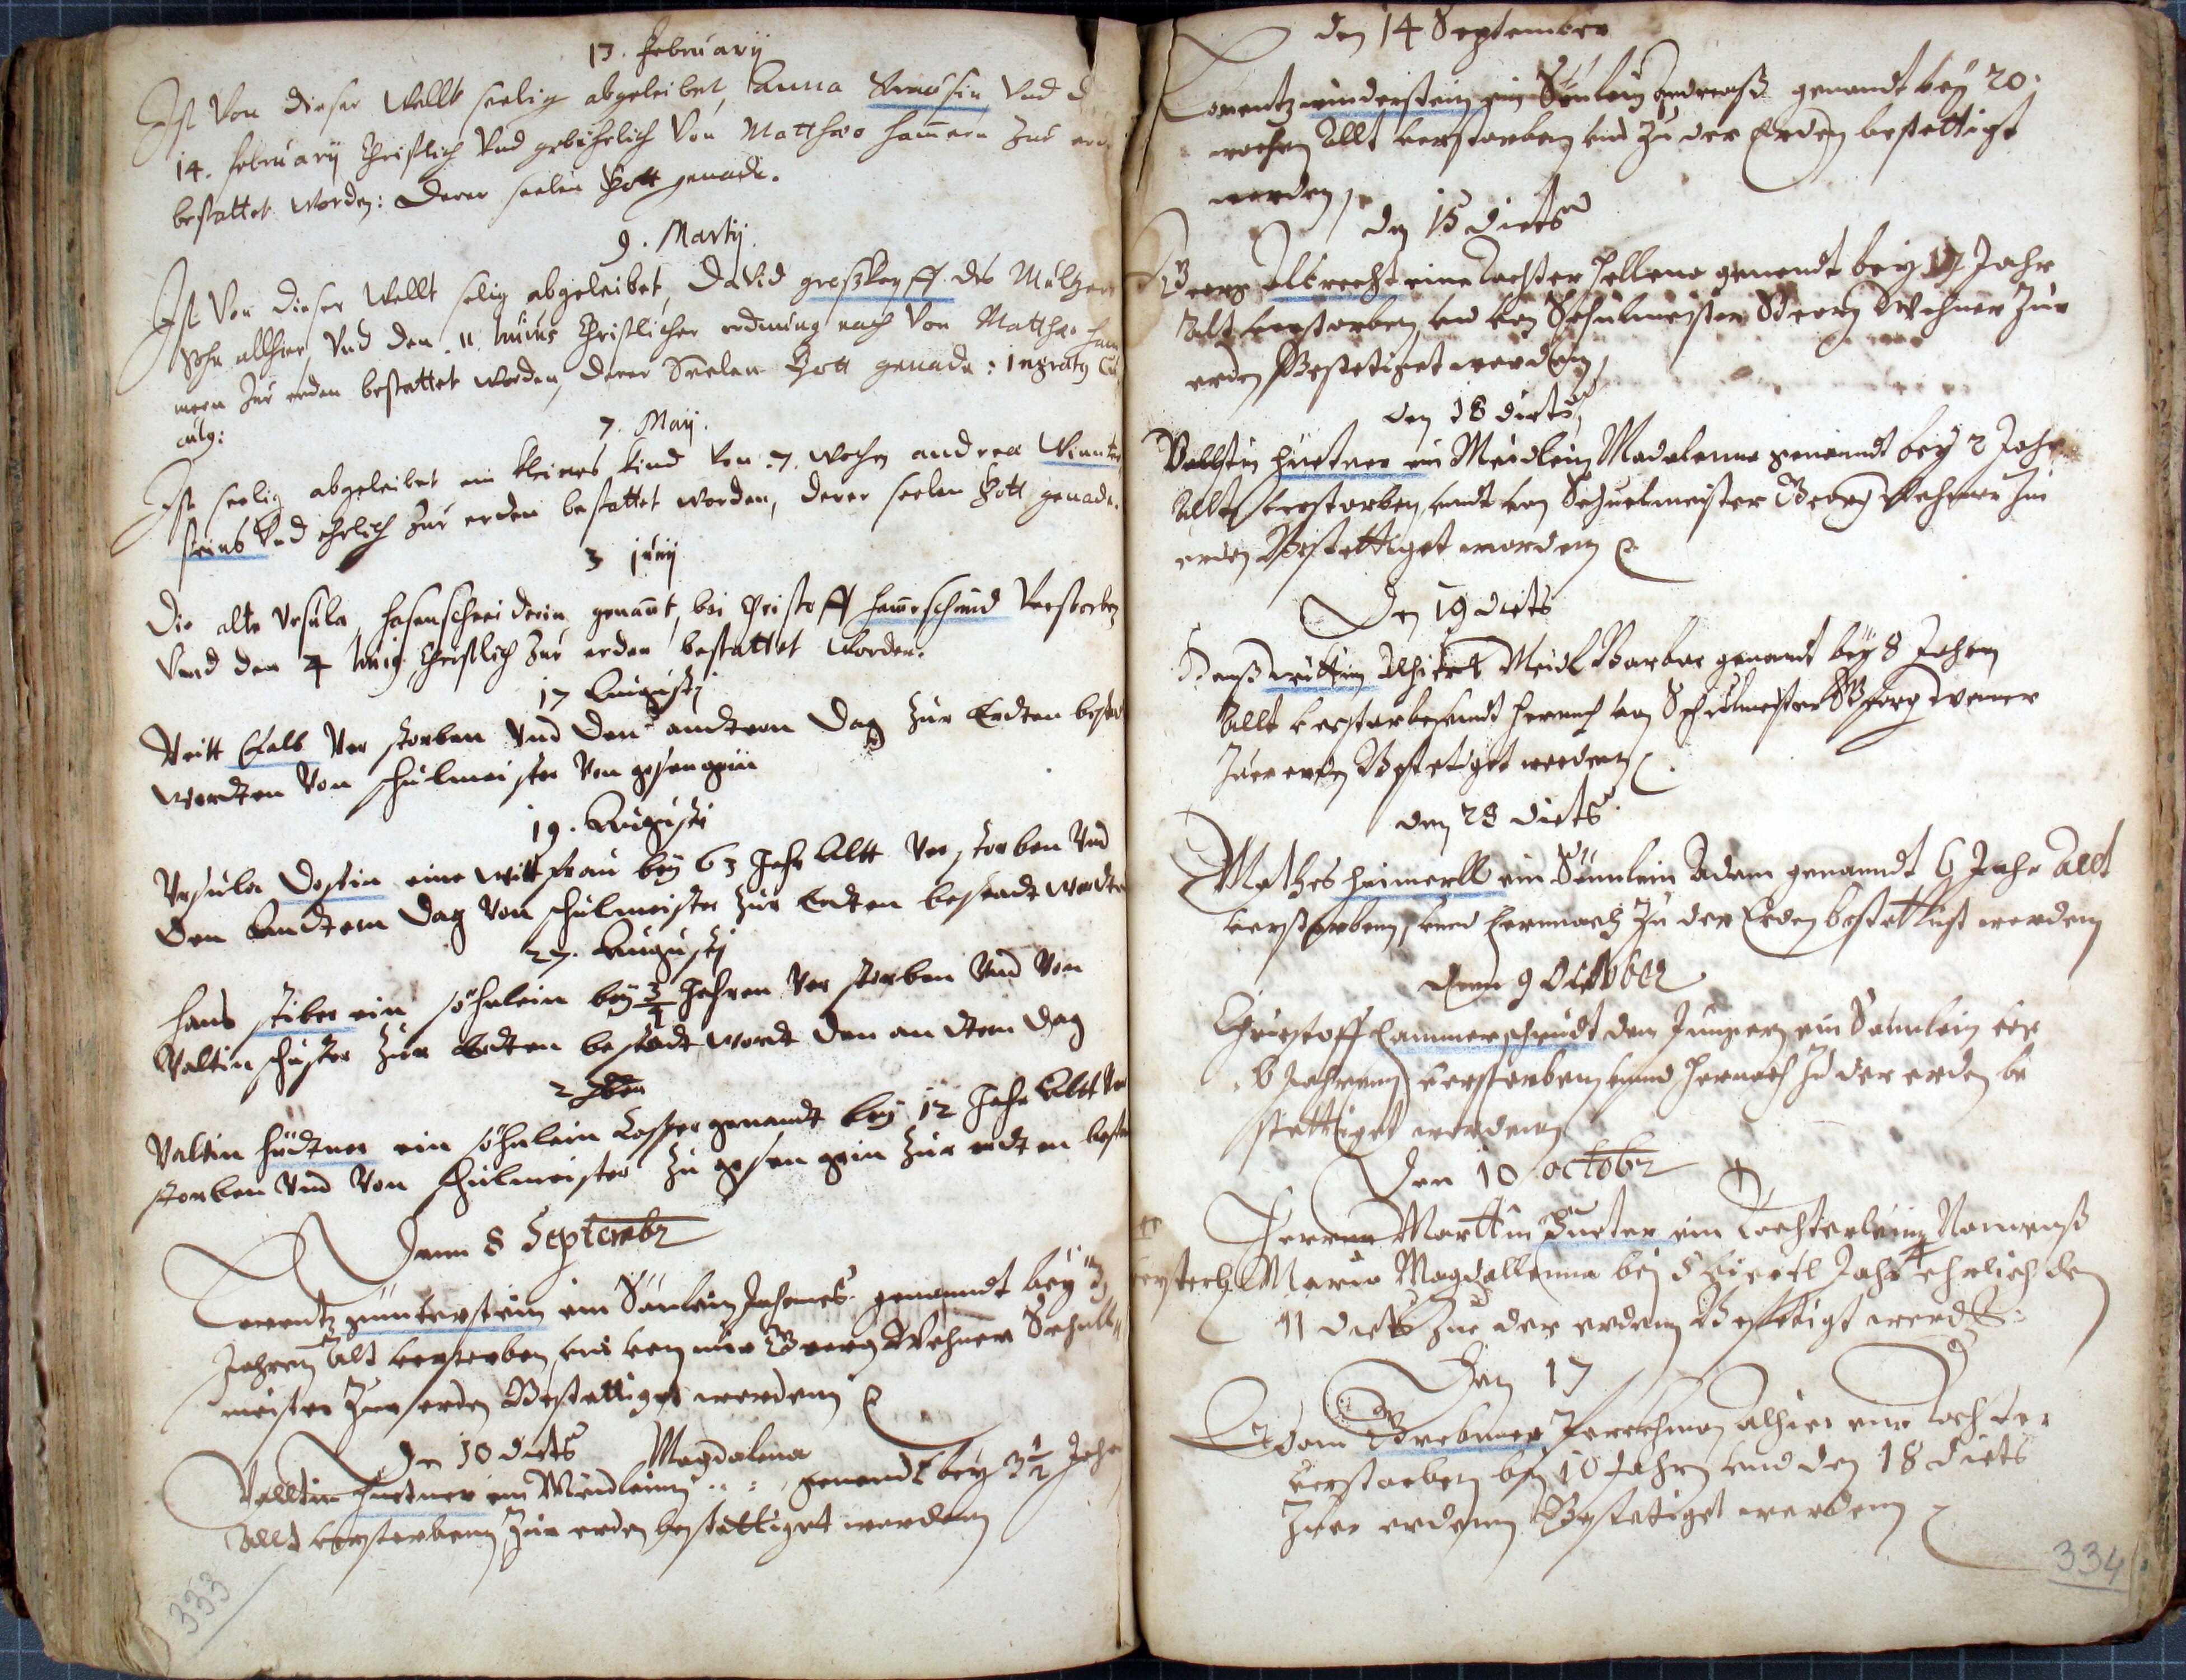 13. Februarij
Ist Von dieser Wellt seelig abgeleibet, Anna Vnd
14. februarij Christlich Vnd gebührlich Von Matthæo hamern Zur
bestattet worden: Derer seelen Gott genade.
9. Martij.
Ist Von dieser Wellt selig abgeleibet, David großkopff des
Sohn allhier, Vnd den 11. huius Christlicher ordnung nach Von Matthæo
mern Zur erden bestattet worden, derer Seelen Gott genade:
7. Maij.
Ist seelig abgeleibet ein kleines kind Von 7. wochen andrea
steins Vnd ehrlich Zur erden bestattet worden, derer seelen Gott genade.
3 junij
Die alte Vrsula, hasenschneiderin genant, bei Christoff hamerschmid Verstorben
Vnd den 4 huius Christlich Zur erden bestattet worden.
17 Augustj
Veitt Calb Ver storben Vnd den anderen Dag Zur Erdten
wordten Von schulmeister Von
19. Augustj
Vrsula Dostin eine wittfrau bey 63 Jahr Altt Ver storben Vnd
Den Andtern Dag Von schulmeister Zur Erdten bestadt wordten
27. Augustj
Hans stiber ein söhnlein bey 3/4 Jahren Ver storben Vnd Von
Valtin schuster Zur Erdten bestadt wordt den andtern Dag
2 7ber
Valtin hüdtner ein söhnlein Casper genandt bey 12 Jahr Altt
storben Vnd Von schulmeister Zu Zur erdten
Denn 8 Septembr
Lorentz ein Sönlein Johannes genanndt bey 3
Jahren Alt verstorben, von mir Georg Wehner Schull
meister Zur erden Bestettiget worden
Den 10 diets Magdalena
Valltin huetner ein Meidlein genandt bey 3 1/2 Jahr
Allt verstorbenn Zur erden bestettiget worden
333
den 14 September
Lorentz winderstein ein Sönlein Andreaß genandt bey 20
wochen Allt verstorben und Zu der Erden bestettigt
worden
den 15 diets
Georg Albrecht eine Tochter Hellena genandt bey Jahr
Alt verstorben, von Schulmeister Georg Wehner Zur
erden Bestetiget worden
den 18 diets
Valltin huetner ein Meidlein Madalenna genandt bey 2 Jahr
Allt verstorben, undt von Schuelmeister Georg Wehner Zur
erden Bestettiget worden
Den 19 diets
Hanß Meidl Barbar genandt bey 8 Jahren
Allt verstorben undt hernach von Schulmeister Georg Wener
Zuer erden Bestetiget worden
den 28 diets
Mathes heimerll ein Sünnlein Adam genanndt 6 Jahr Alt
verstorben, unnd hernnach Zu der Erden bestettigt worden
Denn 9 October
Christoff hammerschmidt der Junger ein Sünnlein
6 Jahrenn verstorben unnd hernach Zu der erden be
stettiget worden
Den 10 octobr
Herren Marttin ein Tochterlein Namenß
versterb Maria Magdallenna bey 5 Viertl Jahr ehrlich den
11 diets Zue der erden Bestetigt word
Den 17
Adam alhier eine Tochter
verstorben bey 10 Jahren und den 18 diets
Zuer erdenn Bestetiget worden
334